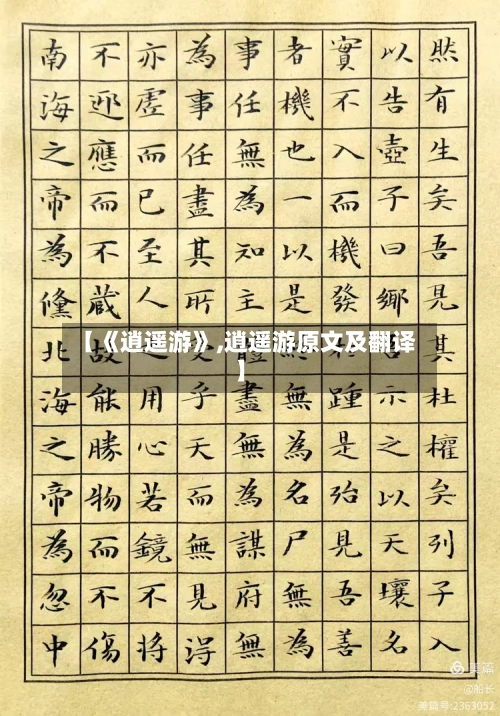 然有生矣吾見其杜權矣列子入
以告壺子曰鄉示之以天壤名
實不入而機發踵是殆見吾善
者機也一以是無為名尸無為
事任無為知主體盡無為謀府無
為事任盡其所乎天而無見淂
亦虛而已至人用心若鏡不將
不迎應而不藏故能勝物而不傷
南海之帝為儵北海之帝為忽中
【《逍遥游》,逍遥游原文及翻译
】
美篇
@船长
美篇号:2363052